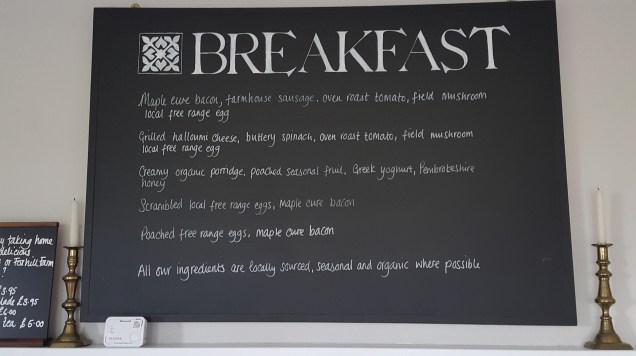 BREAKFAST
Maple cure bacon, farmhouse sausage, oven roast tomato, field mushroom
local free range egg
Grilled halloumi cheese, buttery spinach, oven roast tomato, field mushroom
local free range egg
Creamy organic porridge, poached seasonal fruit, Greek yoghurt, Pembrokeshire
honey
Scrambled local free range eggs, Maple cure bacon
Poached free range eggs, maple cure bacon
All our ingredients are locally sourced, seasonal and organic where possible
y taking home
delicious
or Foxhill Farm
?
£3.95
lade £3.95
£6.00
tea £5.00